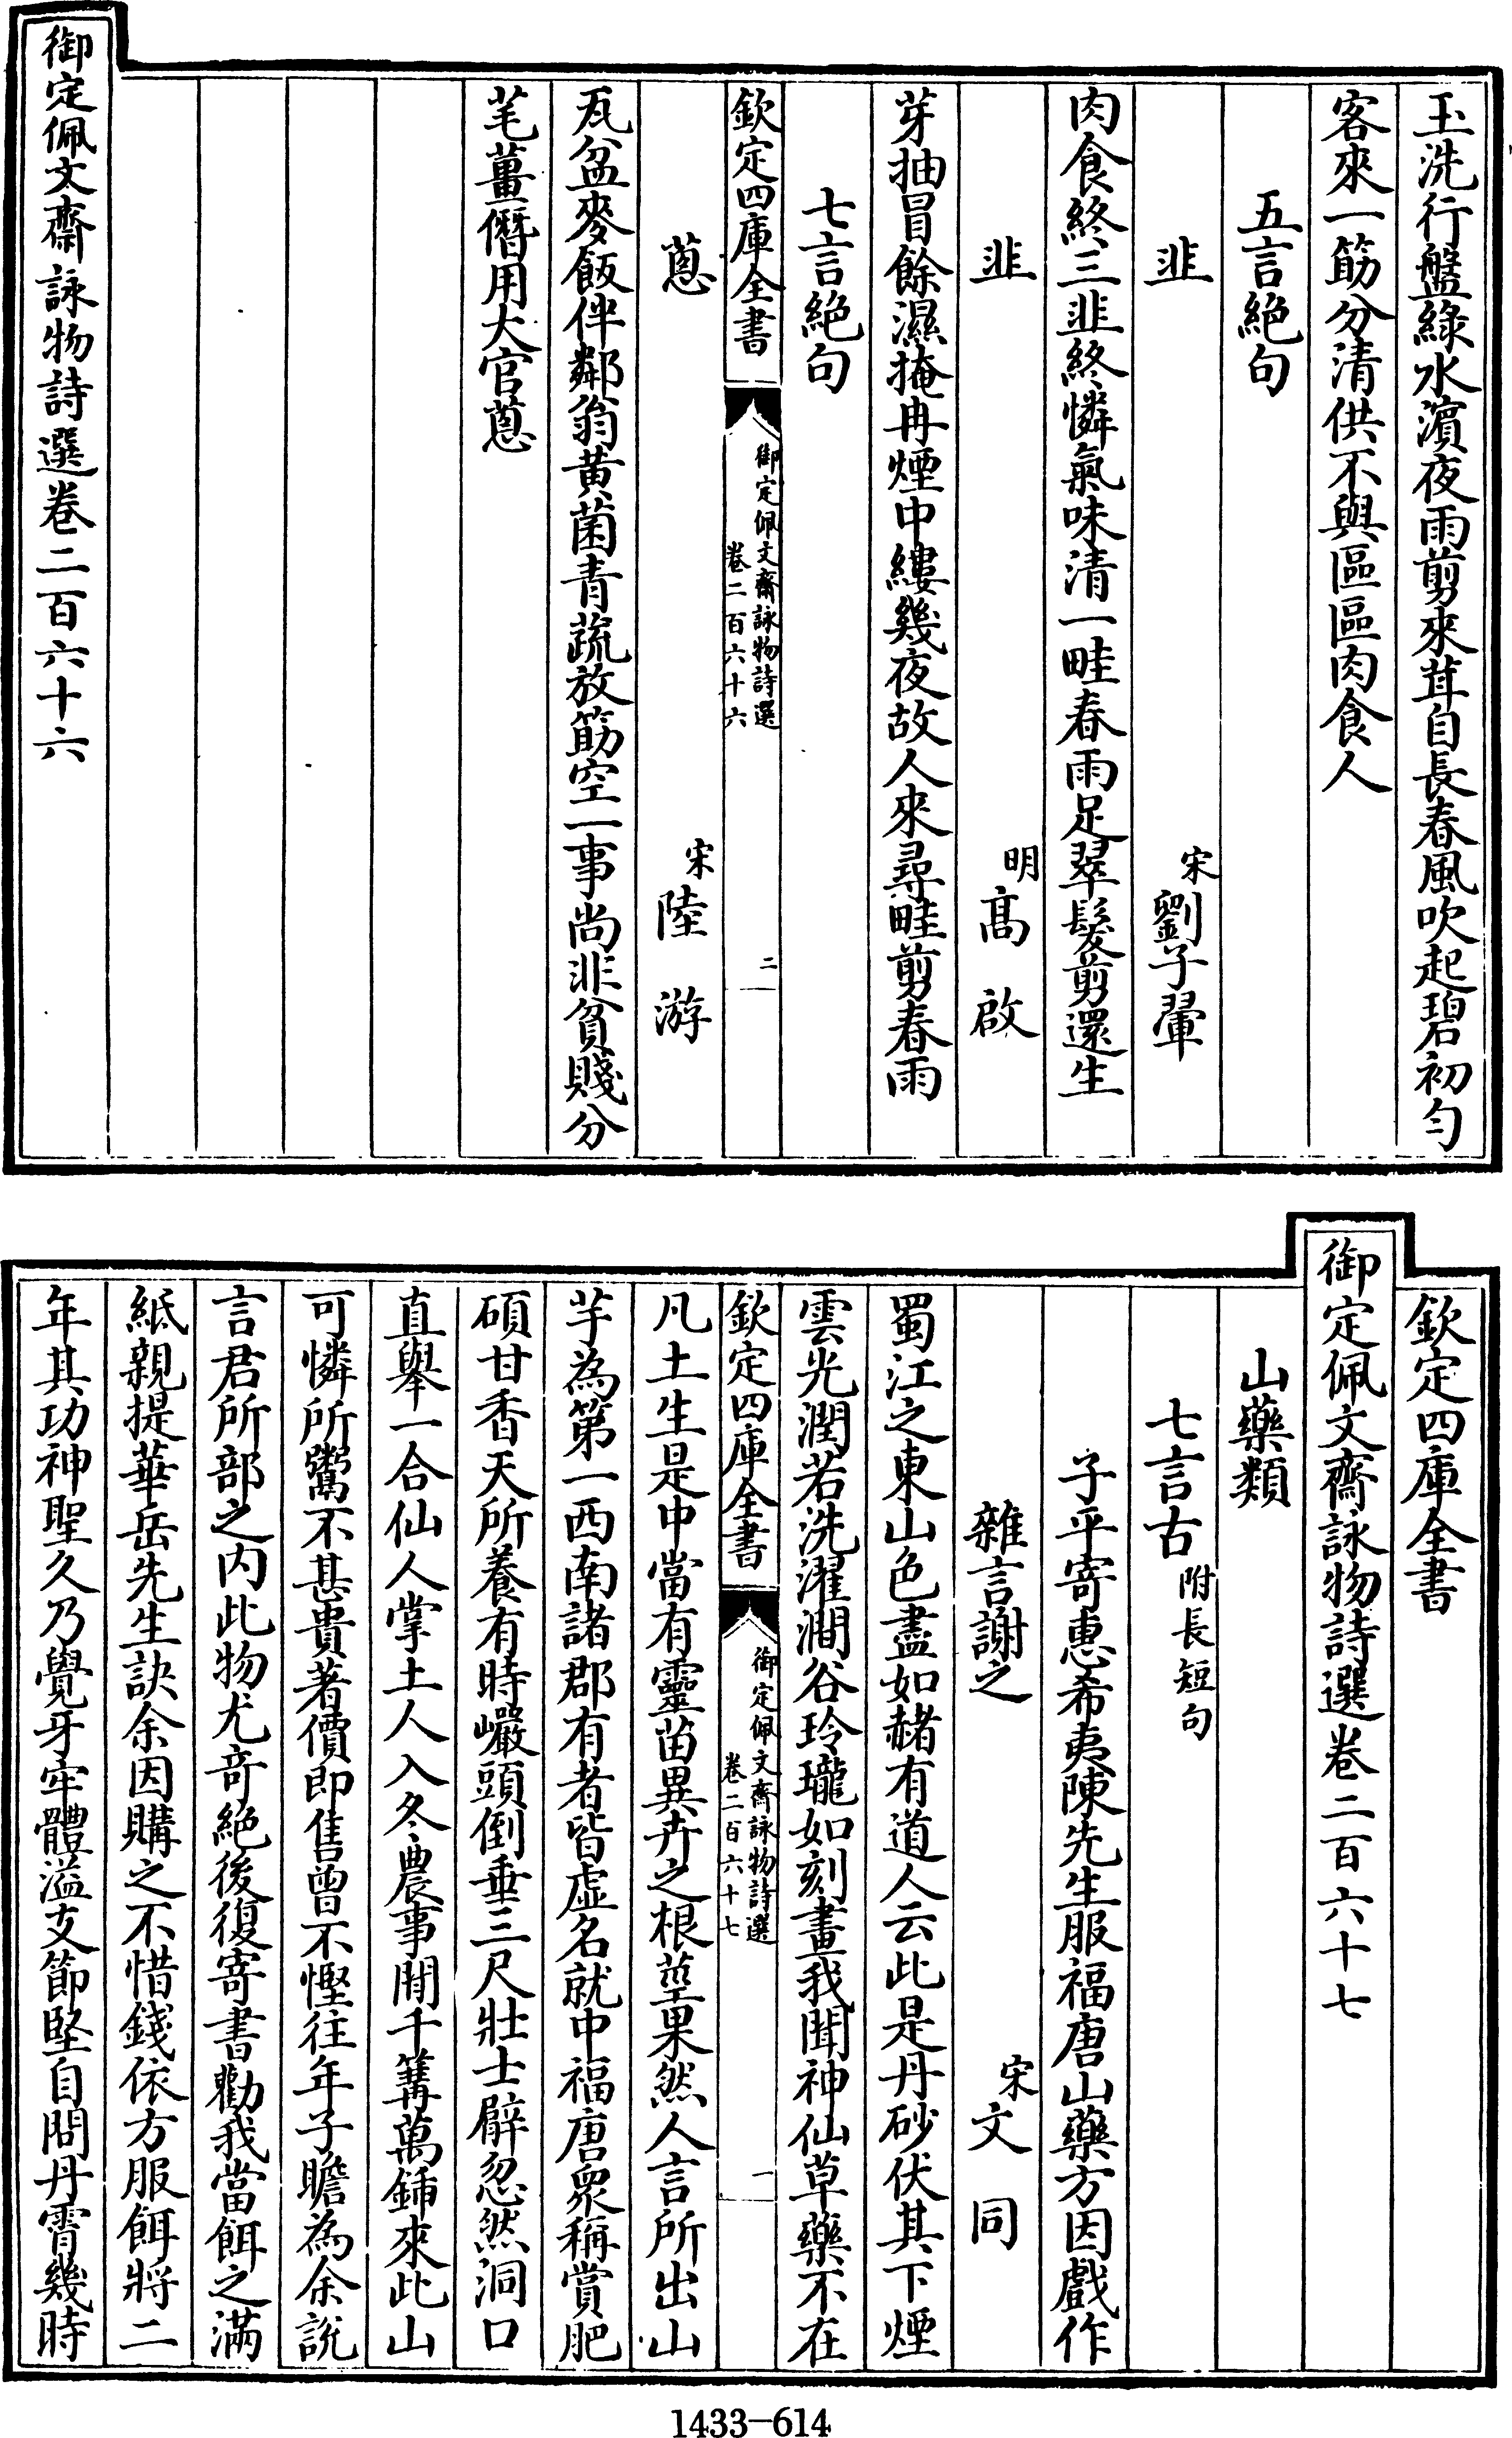 玉洗行盤綠水濵夜雨剪來茸自長春風吹起碧初勻
客來一筯分清供不與區區肉食人
五言絶句
韭　宋劉子翬
肉食終三韭終憐氣味清一畦春雨足翠髮剪還生
韭　明髙啟
芽抽冒餘濕掩冉煙中縷幾夜故人來尋畦剪春雨
七言絶句
欽定四庫全書　御定佩文齋詠物詩選卷二百六十六　二
蔥　宋陸游
瓦盆麥飯伴鄰翁黃菌青蔬放筯空一事尚非貧賤分
芼薑僭用大官蔥
御定佩文齋詠物詩選卷二百六十六
欽定四庫全書
御定佩文齋詠物詩選卷二百六十七
山藥類
七言古附長短句
子平寄惠希夷陳先生服福唐山藥方因戲作
雜言謝之　宋文同
蜀江之東山色盡如赭有道人云此是丹砂伏其下煙
雲光潤若洗濯澗谷玲瓏如刻畫我聞神仙草藥不在
欽定四庫全書　御定佩文齋詠物詩選卷二百六十七　一
凡土生是中當有靈苗異卉之根莖果然人言所出山
芋為第一西南諸郡有者皆虛名就中福唐衆稱賞肥
碩甘香天所養有時巖頭倒垂三尺壯士臂忽然洞口
直舉一合仙人掌土人入冬農事閒千篝萬鍤來此山
可憐所鬻不甚貴著價即售曾不慳往年子瞻為余說
言君所部之內此物尤奇絶後復寄書勸我當餌之滿
紙親提華岳先生訣余因購之不惜錢依方服餌將二
年其功神聖久乃覺牙牢體溢支節堅自問丹霄幾時
1433-614